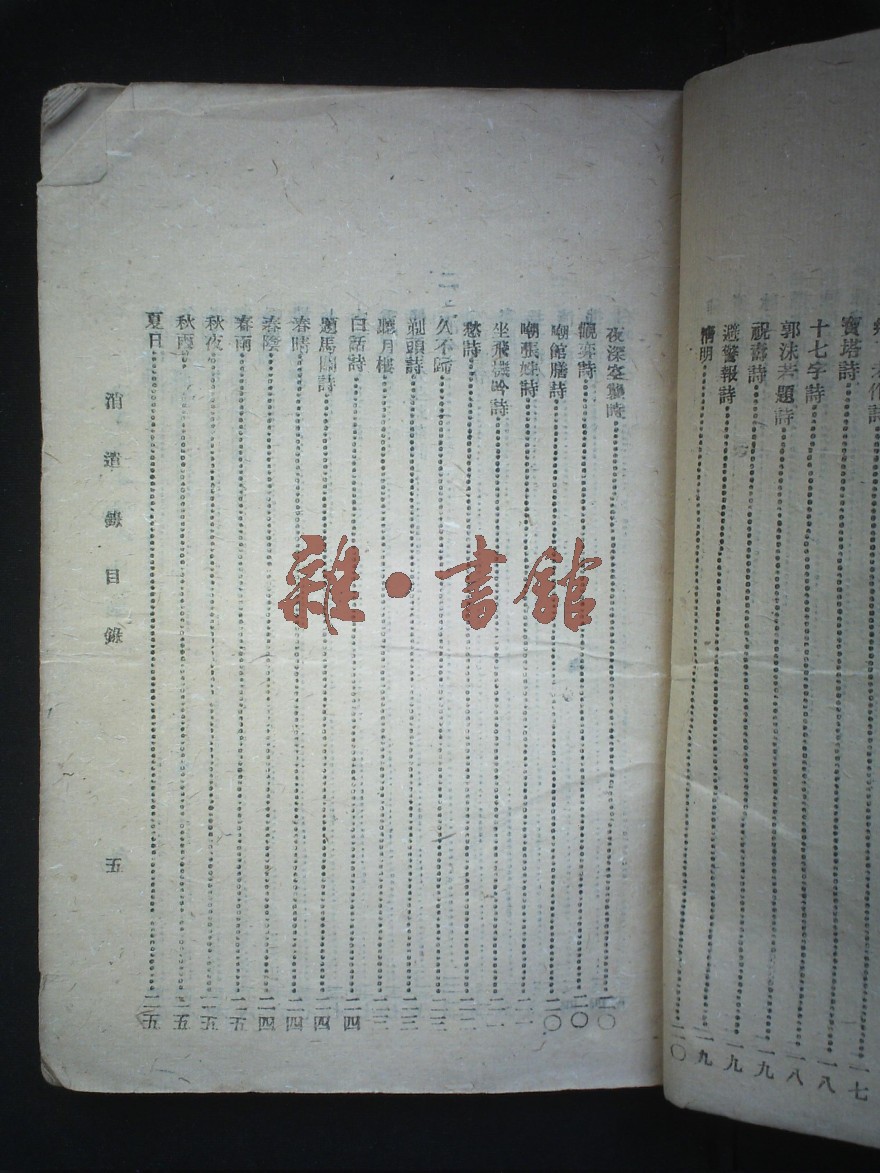 寶塔詩 一七
十七字詩 一八
郭沫若題詩 一八
祝壽詩 一九
避警報詩 一九
清明 一九
二〇
夜深空襲時 二〇
觀弈詩 二〇
嘲館膳詩 二〇
嘲張姓詩 二一
坐飛機吟詩 二一
愁詩 二二
久不歸 二三
剃頭詩 二三
聽月樓 二三
白話詩 二四
題馬關詩 二四
春晴 二四
春陰 二四
春雨 二五
秋夜 二五
秋雨 二五
夏日 二五
消遣 目錄
五
雜·書館